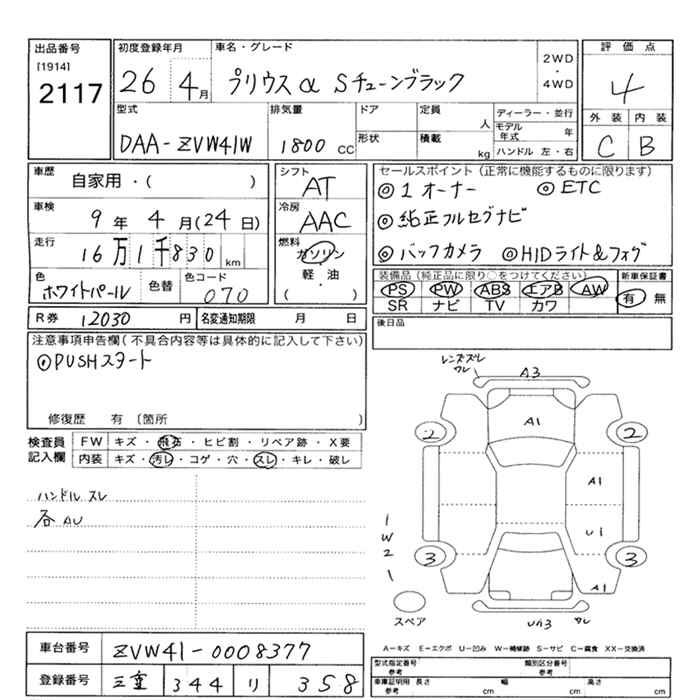 出品番号 初度登録年月 車名・グレード 2WD・4WD 評価点
[1914]
2117
26 4月 プリウスα Sチューンブラック 4
型式 排気量 ドア 定員 人 ディーラー・並行 外装 内装
モデル年式 年
DAA-ZVW41W 1800 CC 形状 積載 kg ハンドル 左・右 C B
車歴 自家用・( )
シフト AT
セールスポイント(正常に機能するものに限ります)
◎1オーナー ◎ETC
車検 9年4月(24日)
冷房 AAC
◎純正フルセグナビ
走行 16万1千830km
燃料 ガソリン
軽・油
( )
◎バックカメラ ◎HIDライト&フォグ
色 ホワイトパール 色替 色コード 070
装備品(純正品に限り○をつけてください) 新車保証書
PS PW ABS エアB AW 有 無
SR ナビ TV カワ
R券 12030円 名変通知期限 月 日
後日品
注意事項申告欄(不具合内容等は具体的に記入して下さい)
◎PUSHスタート
修復歴 有〔箇所 )
検査員記入欄
FW キズ・飛石・ヒビ割・リペア跡・X要
内装 キズ・汚レ・コゲ・穴・スレ・キレ・破レ
ハンドルスレ
各AU
レンズスレ
ワレ
A3
A1
2 2
A1
U1
1
W
2
1
3 3
A1
スペア
Uハ3 ワレ
A-キズ E-エクボ U-凹み W-補修跡 S-サビ C-腐食 XX-交換済
車台番号 ZVW41-0008377
登録番号 三重 344 リ 358
型式指定番号 参考 類別区分番号 参考
車庫証明用 参考 長さ cm 幅 cm 高さ cm